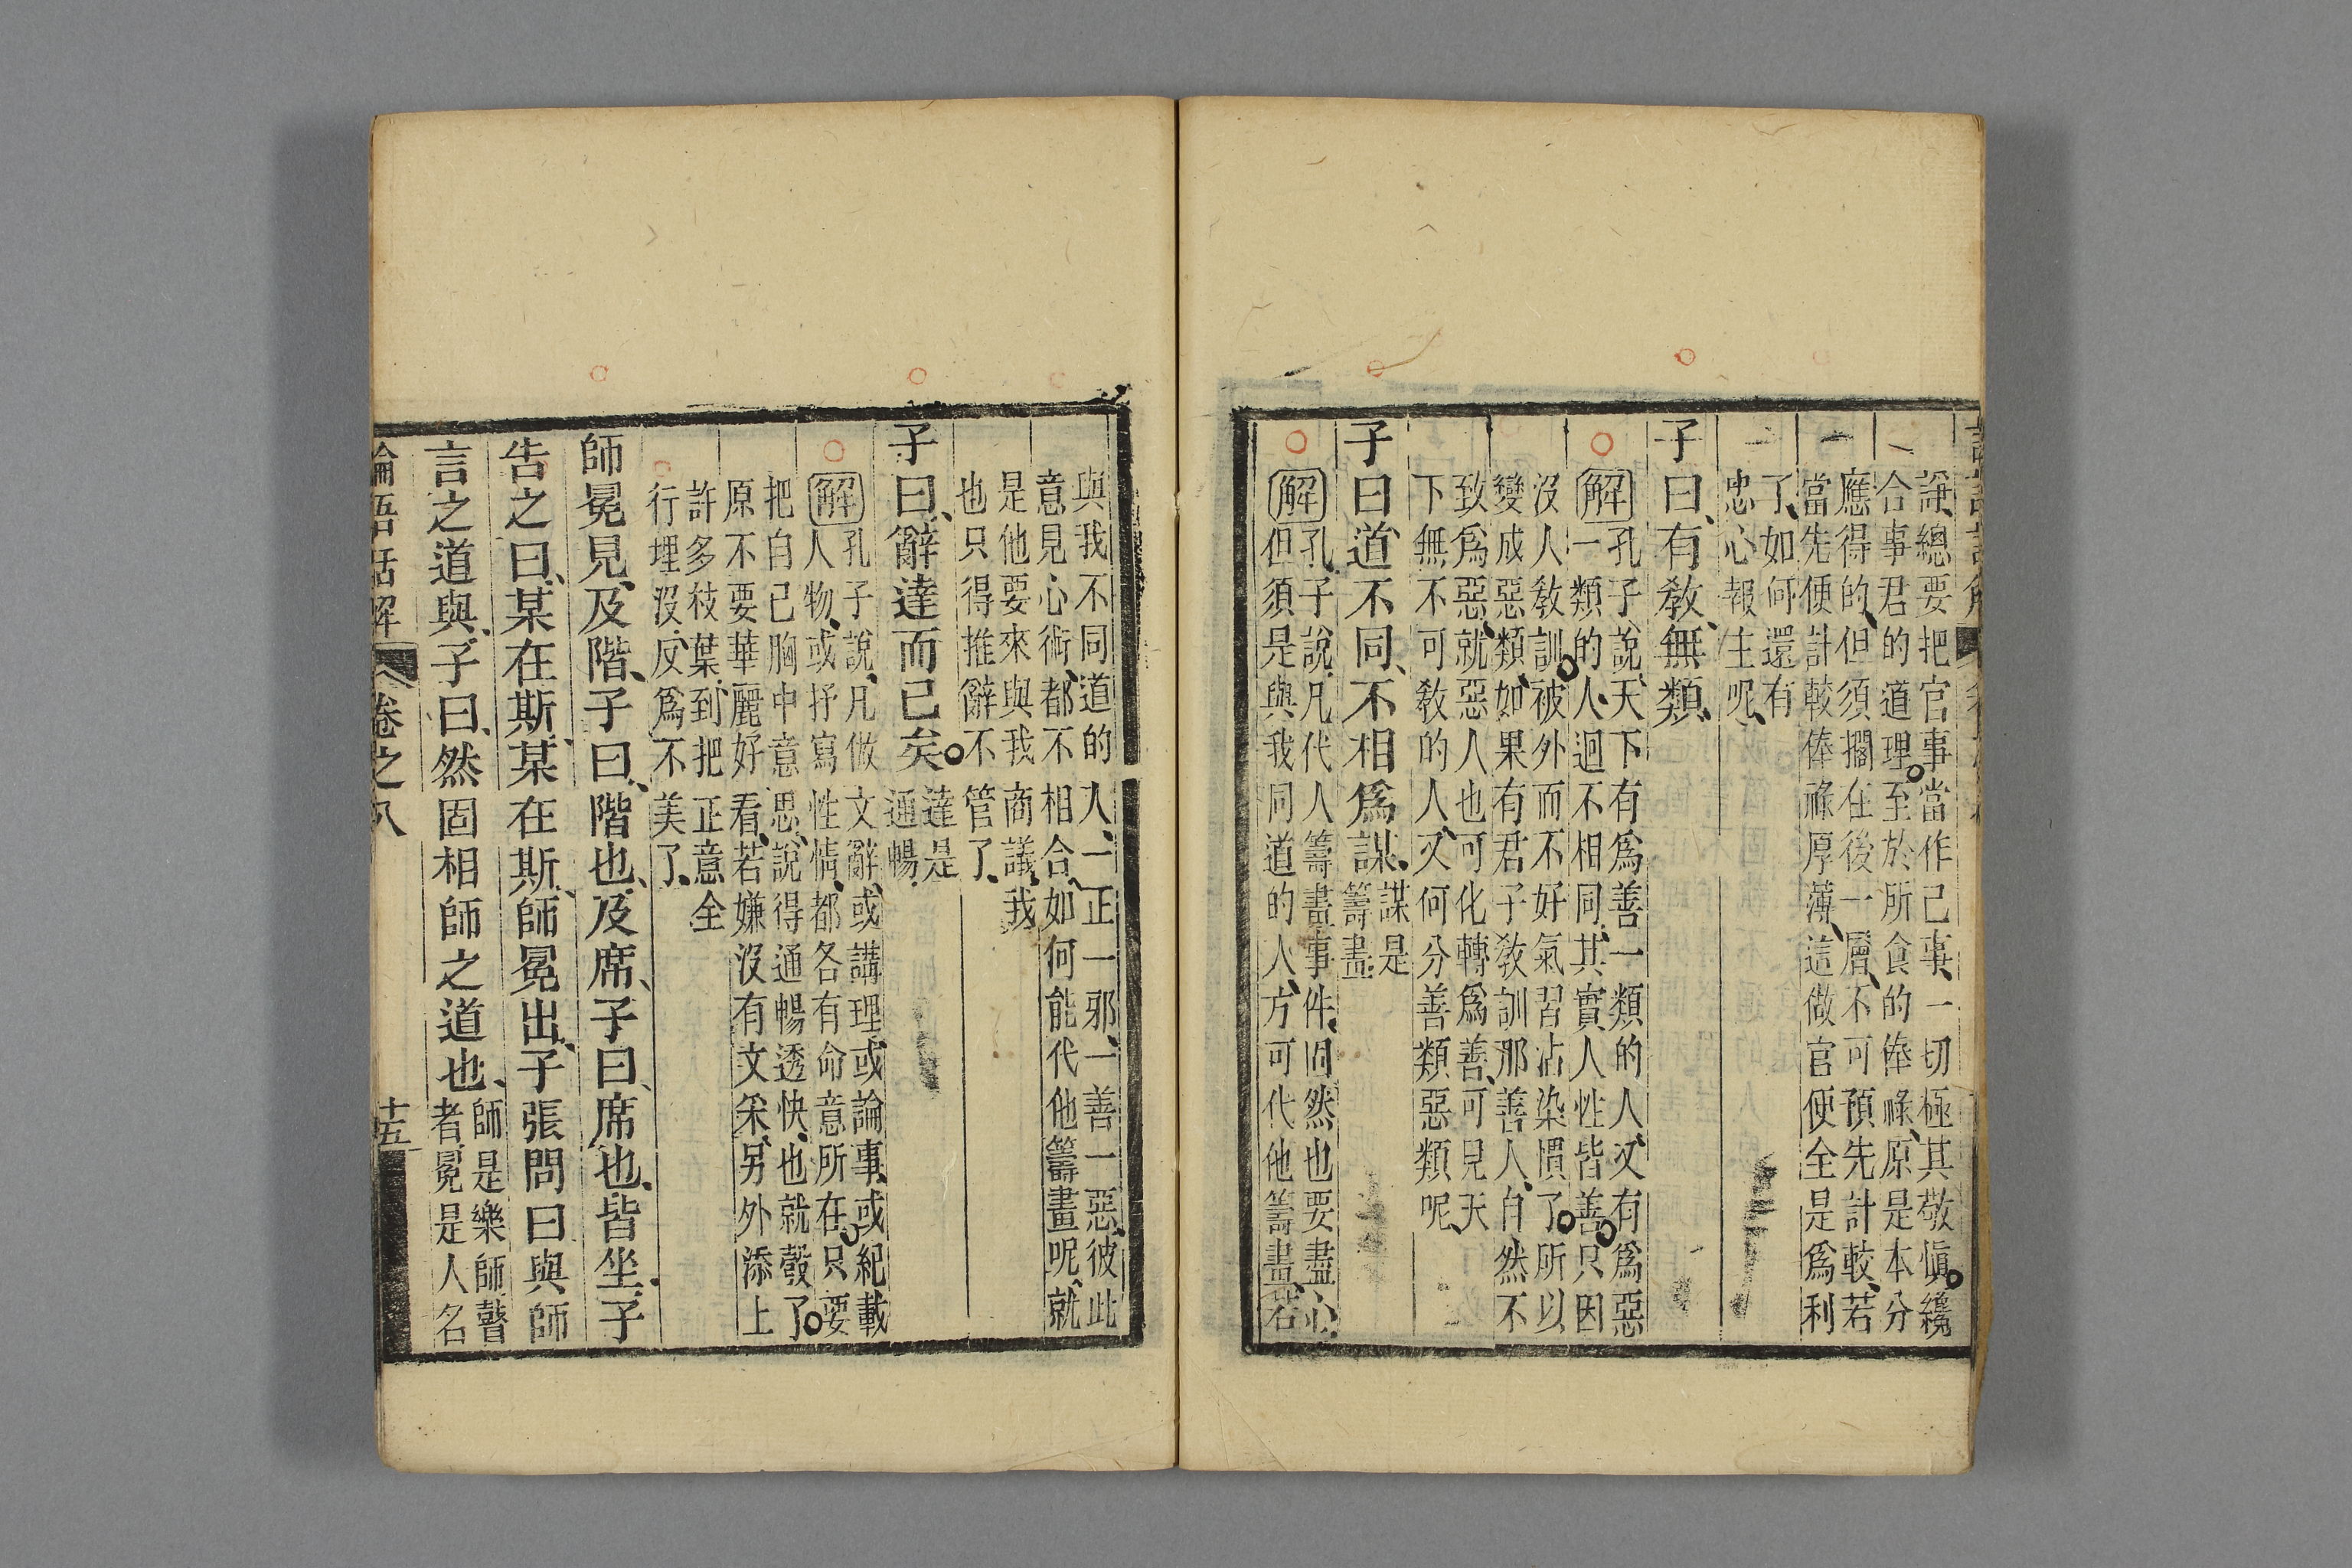 諍、總要把官事當作己事、一切極其敬愼。纔
合事君的道理。至於所食的俸祿、原是本分
應得的、但須擱在後一層、不可預先計較、若
當先便計較俸祿厚薄、這做官便全是爲利
了、如何還有
忠心報主呢、
子曰、有教、無類、
解孔子說、天下有爲善一類的人、又有爲惡
一類的人、迥不相同、其實人性皆善。只因
沒人教訓。被外而不好氣習沾染慣了。所以
變成惡類、如果有君子教訓那善人、自然不
致爲惡、就惡人也可化轉爲善、可見天
下無不可教的人、又何分善類惡類呢、
子曰、道不同、不相爲謀、謀是
籌畫
解孔子說、凡代人籌畫事件、固然也要盡心、
但須是與我同道的人、方可代他籌畫、若
與我不同道的人、一正一邪、一善一惡、彼此
意見心術、都不相合、如何能代他籌畫呢、就
是他要來與我商議、我
也只得推辭不管了、
子曰、辭達而已矣。達是
通暢
解孔子說、凡做文辭、或講理、或論事、或紀載
人物、或抒寫性情、都各有命意所在。只要
把自己胸中意思、說得通暢透快、也就彀了。
原不要華麗好看、若嫌沒有文采、另外添上
許多枝葉、到把正意全
行埋沒、反爲不美了、
師冕見、及階、子曰、階也、及席、子曰、席也、皆坐、子
告之曰、某在斯、某在斯、師冕出、子張問曰與師
言之道與、子曰、然固相師之道也、師是樂師瞽
者、冕是人名
論語話解 卷之八 十五